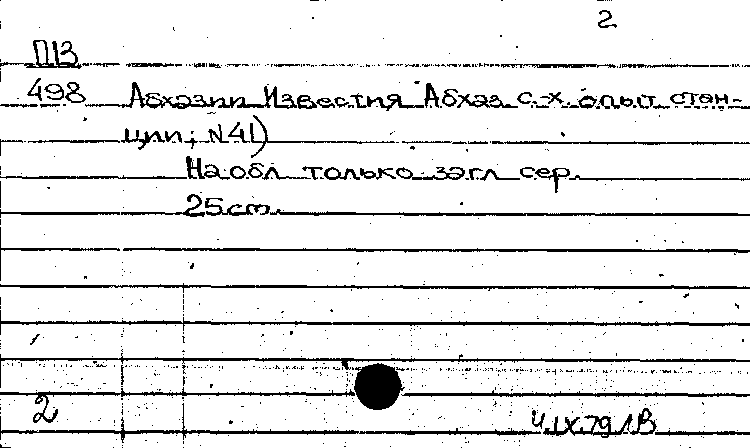 2
П13
498 Абхазии Известия Абхаз с.-х. опыт стан-
ции; N41)
На обл только загл сер.
25 cm.
2
4.IX.79 ЛВ